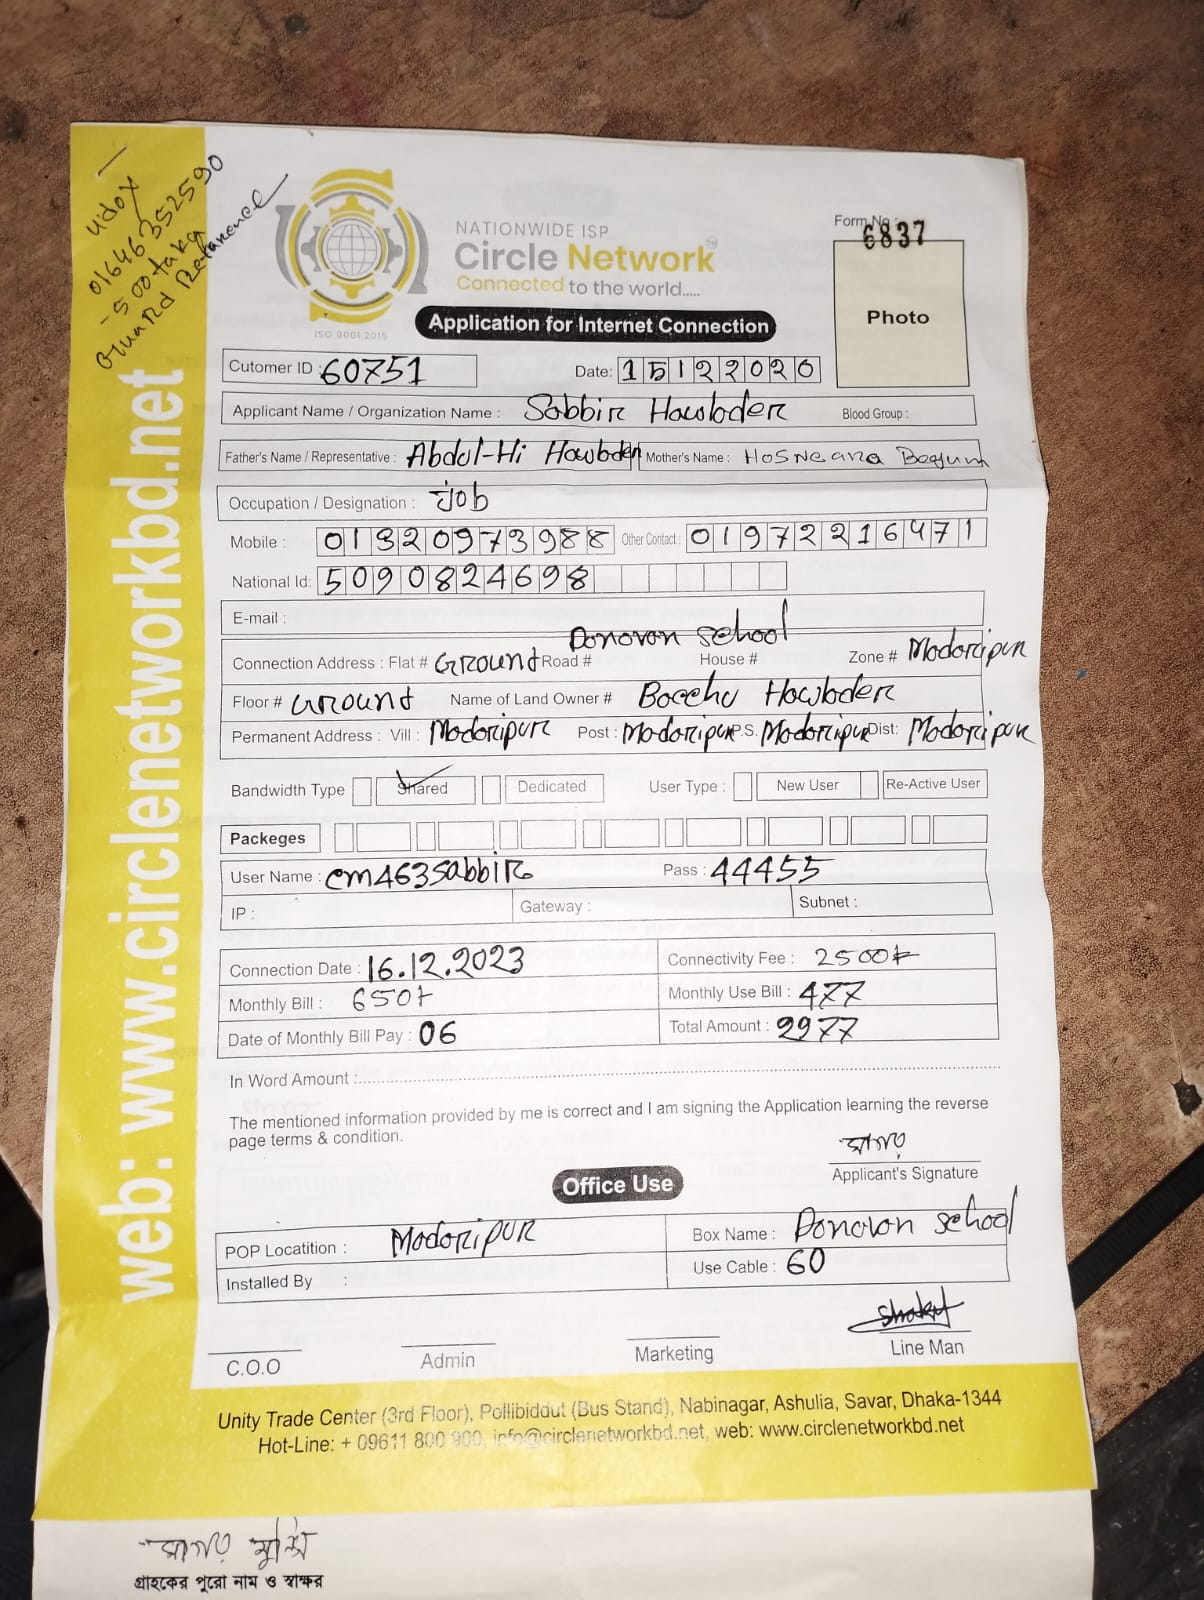 uidox
01646352590
-500 taka
GuaRd Referance
NATIONWIDE ISP
Circle Network
Connected to the world.....
ISO 9001:2015
Application for Internet Connection
Form No : 6837
Photo
Cutomer ID : 60751 Date: 15122020
Applicant Name / Organization Name : Sabbir Hawlader Blood Group :
Father's Name / Representative : Abdul-Hi Hawlader Mother's Name : HosNeara Begum
Occupation / Designation : Job
Mobile : 01320973988 Other Contact : 01972216471
National Id: 5090824698
E-mail :
Donovan School
Connection Address : Flat # Ground Road # House # Zone # Madaripur
Floor # Ground Name of Land Owner # Bacchu Hawlader
Permanent Address : Vill : Madaripur Post : Madaripur P.S. Madaripur Dist: Madaripur
Bandwidth Type Shared Dedicated User Type : New User Re-Active User
Packeges
User Name : cm463sabbir Pass : 44455
IP : Gateway : Subnet :
Connection Date : 16.12.2023 Connectivity Fee : 2500
Monthly Bill : 650 Monthly Use Bill : 477
Date of Monthly Bill Pay : 06 Total Amount : 2977
In Word Amount :
The mentioned information provided by me is correct and I am signing the Application learning the reverse
page terms & condition.
সাগর
Applicant's Signature
Office Use
POP Locatition : Madaripur Box Name : Donovan School
Installed By : Use Cable : 60
Shakil
C.O.O Admin Marketing Line Man
Unity Trade Center (3rd Floor), Pollibiddut (Bus Stand), Nabinagar, Ashulia, Savar, Dhaka-1344
Hot-Line: + 09611 800 900, info@circlenetworkbd.net, web: www.circlenetworkbd.net
সাগর মুন্সি
গ্রাহকের পুরো নাম ও স্বাক্ষর
web: www.circlenetworkbd.net